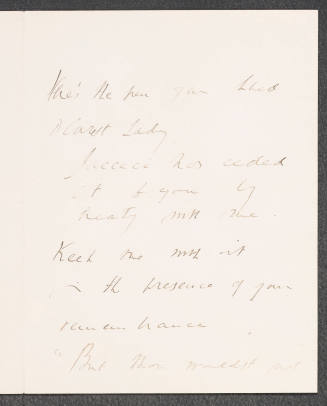 Here's the pen you liked
dearest Lady
Greece has ceded
it to you by
treaty with me.
Keep me with it
in the presence of your
remembrance
"But thou wouldst not